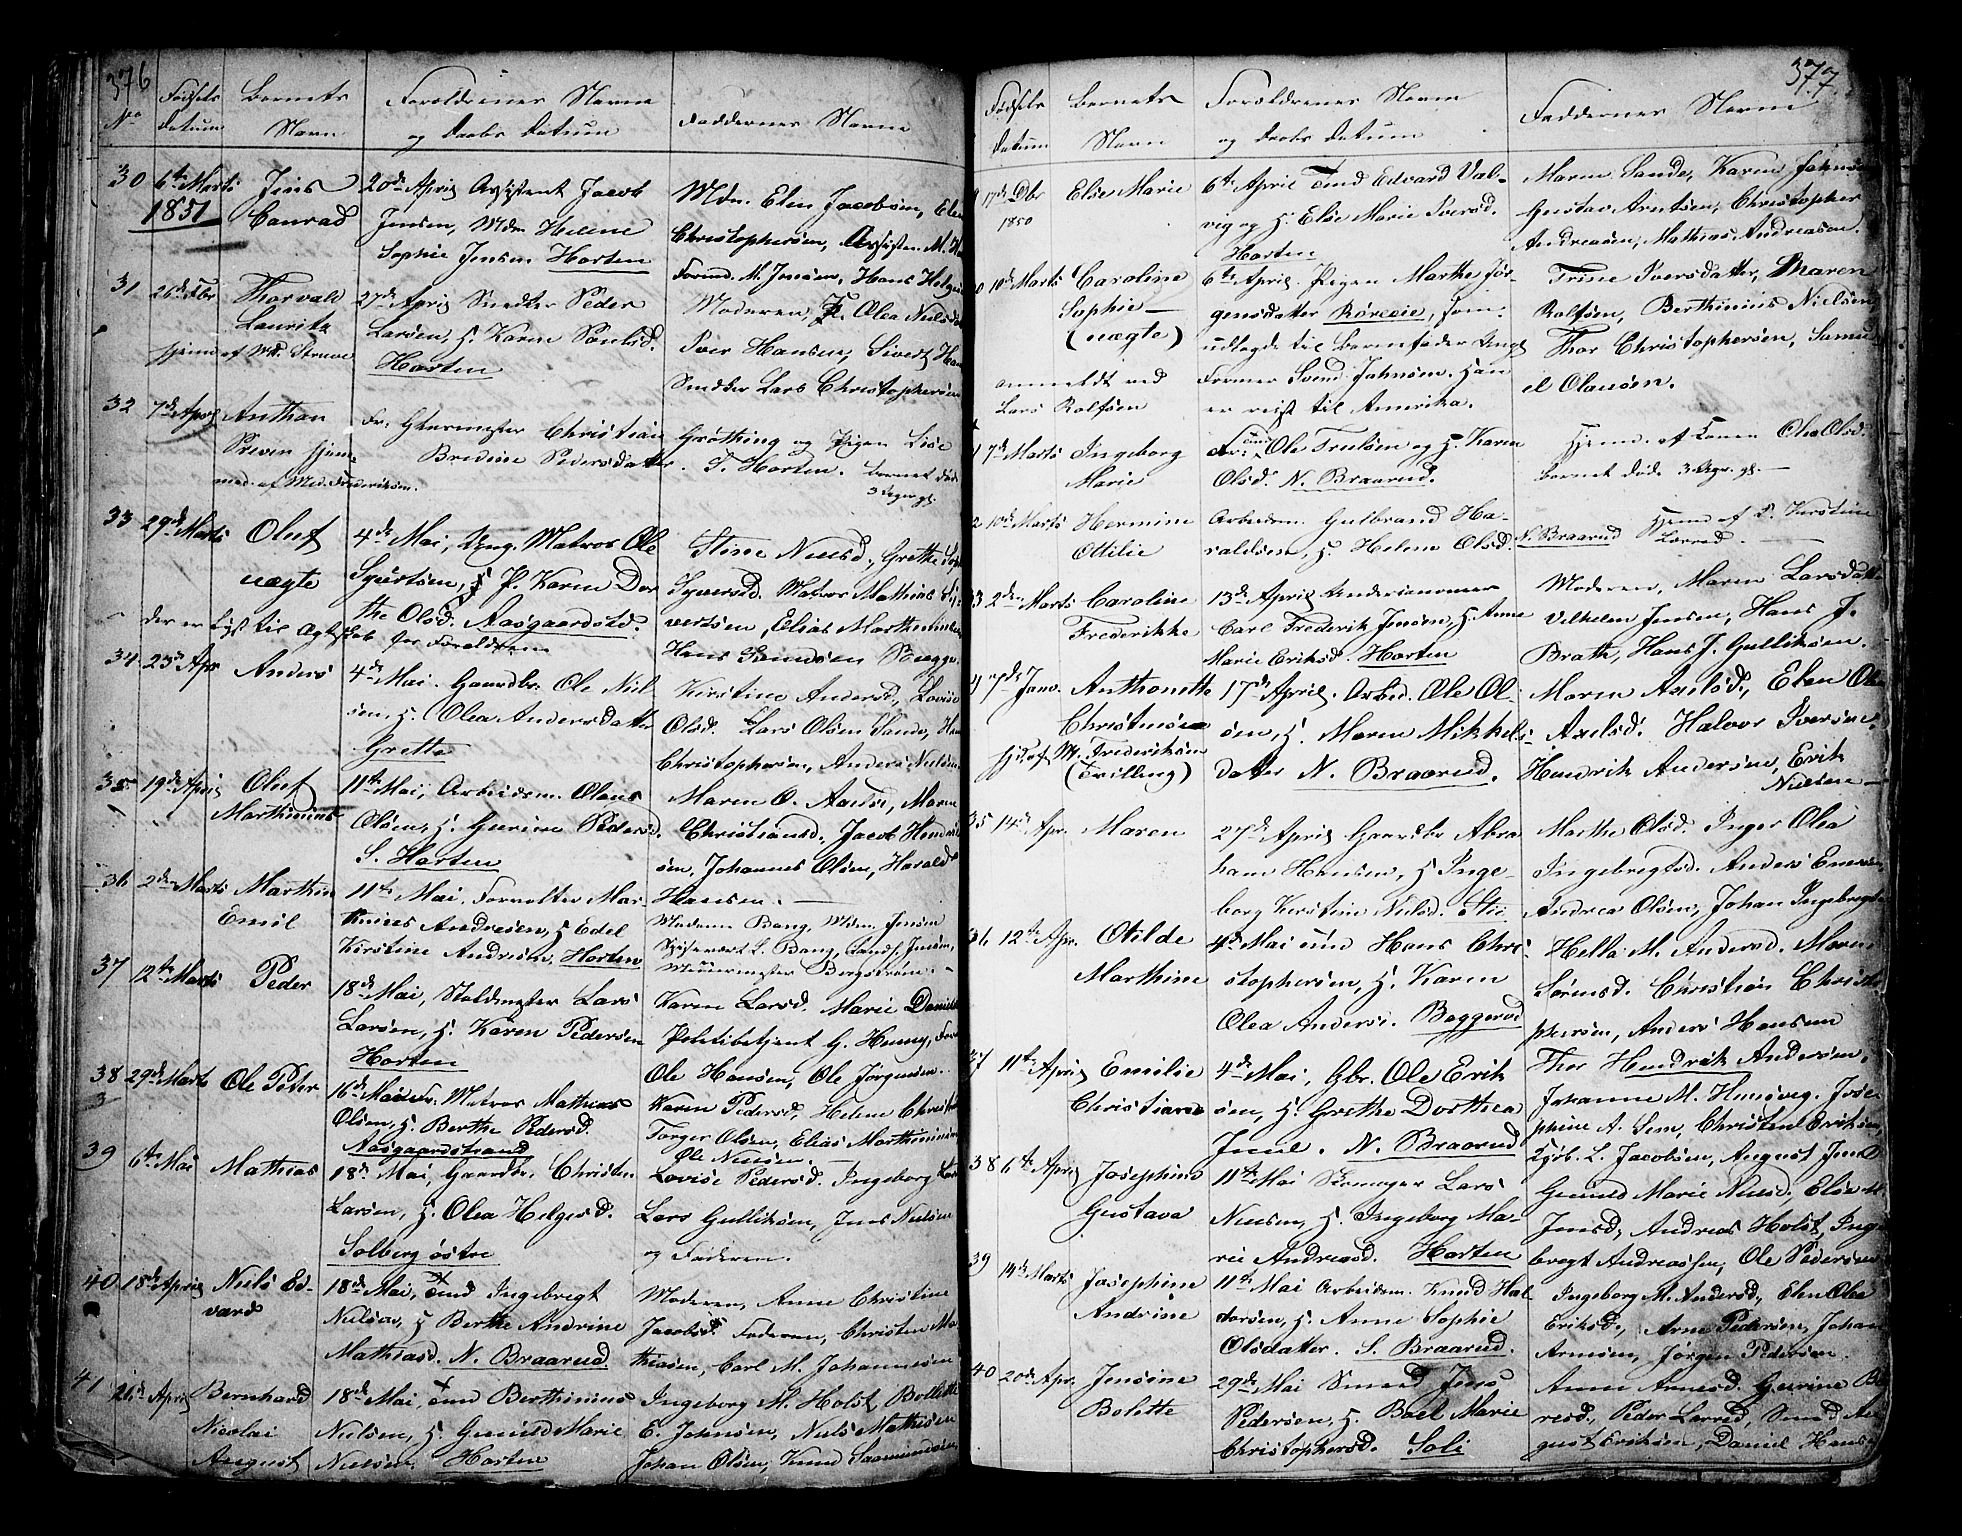 376
No
Fødsels
Datum
Bernets
Navn
Forældrenes Navne
og Daabs Datum
Faddernes Navne
30
6te Marts
1851
Jens
Conrad
20de April Assistent Jacob
Jensen, Mdm Helene
Sophie Jensen Horten
Mdm. Elen Jacobsen, Elen
Christophersen, Assisten. M.
Formd. M. Jensen, Hans Helge
31
26de Fbr
Thorvald
Lauritz
hjemd af Md. Struve
27de April Snedker Peder
Larsen, H. Karen Poulsd.
Horten
Moderen, P. Olea Nielsd
Iver Hansen, Sivert
Snedker Lars Christophersen
32
7de April
Anthon
Preven hjem-
med. af Md. Frederiksen.
Fr. Gjørmester Christian
Bredine Pedersdatter.
Grøthing og Pigen Lise
S. Horten. Bernet død
3 Dage gl.
33
29de Marts
Oluf
uægte
4de Mai, Ung. Matros Ole
Syvertsen, & P. Karen Dor
the Olsd. Aasgaardstd.
Der er lyst til Ægtskab for Forældrene
Stine Nielsd., Grethe
Syversd. Matros Mathias Si-
vertsen, Elias Marthinsen
Hans Svendsen Bugge.
34
23de Apr
Anders
4de Mai. Gaardbr. Ole Niel
sen, H. Olea Andersdatter
Grette
Kirstine Andersd., Lovise
Olsd. Lars Olsen Sande,
Christophersen, Anders Nielsen
35
19de April
Oluf
Marthinius
11te Mai, Arbeidsm. Olaus
Olsen, H. Gurine Pedersd.
S. Horten
Maren O. Axelsd, Maren
Christiansd. Jacob Hendrik
sen, Johannes Olsen, Harald
Hansen.
36
2den Marts
Marthin
Emil
11te Mai, Forvalter Mar-
thinus Andresen, H. Edel
Kirstine Andresen, Horten
Madame Bang, Mdm. Jensen
L. Bang, Jensen,
37
12te Marts
Peder
18de Mai, Staldmester Lars
Larsen, H. Karen Pedersen
Horten
Karen Larsd. Marie
Politibetjent G. Henny,
Ole Hansen, Ole Jørgensen.
38
29de Marts
Ole Peter
16de Mai Fr. Matros Mathias
Olsen, H. Berthe Pedersd.
Aasgaardstrand
Karen Pedersd, Helene
Torger Olsen, Elias Marthinsen
Ole Nielsen.
39
6te Mai
Mathias
18de Mai, Gaardm. Christen
Larsen, H. Olea Helgesd.
Solberg østre
Lovise Pedersd. Ingeborg
Lars Gulliksen, Jens Nielsen
og Faderen.
40
18de April
Niels Ed-
vard
18de Mai, Tmd Ingebregt
Nielsen, H Berthe Andrine
Mathiasd. N. Braarud
Moderen, Anne Christine
Jacobsd. Faderen, Christen Ma
thiesen, Carl M. Johannesen
41
26de April
Bernhard
Nicolai
August
18de Mai, Tmd Berthinius
Nielsen, H. Gunild Marie
Nielsen. Horten
Ingeborg M. Holst, Bolette
E. Johnsen, Niels Mathisen
Johan Olsen, Knud Saamundsen,
377
Fødsels
Datum
Bernets
Navn
Forældrenes Navn
og Daabs Datum
Faddernes Navn
17de Dbr
1850
Else Marie
6te April Tmd Edvard Val-
vig og H. Else Marie Iversd.
Horten
Maren Sande, Karen Johnsen
Gustav Arntsen, Christopher
Andreasen, Mathias Andreasen.
10de Marts
Caroline
Sophie
(uægte)
anmeldt ved
Lars Rolfsen
6te April. Pigen Marthe Jør-
gensdatter Røreeie, som
udlagde til barnefader Ungk
Former Svend Johnsen. Han
er reist til Amerika.
Trine Iversdatter, Maren
Rolfsen, Berthinius Nielsen
Thor Christophersen, Samu
el Olausen.
7de Marts
Ingeborg
Marie
Fr. Tmd Ole Truelsen og H. Karen
Olsd. N. Braarud.
Hjemd. af Konen Olea Olsd.
bernet døde 3 Dgr. gl.
2
10de Marts
Hermine
Ottilie
Arbeidsm. Gulbrand Ha-
raldsen, H Helene Olsd.
N. Braarud
3
2den Marts
Caroline
Frederikke
13de April
Carl Frederik Jensen, H. Anne
Marie Eriksd. Horten
Moderen, Maren Larsdatter
Vilhelm Jensen, Hans J.
Brath, Hans J. Gulliksen.
4
7de Janv.
Anthonette
Christense
hjd. af Md. Frederiksen
(Tvilling)
17de April. Arbid. Ole Ol-
sen, H. Maren Mikkels-
datter N. Braarud.
Maren Axelsd., Elen Olea
Axelsd. Halvor Iversen,
Hendrik Andersen, Erik
Nielsen
35
14de Apr.
Maren
27de April Gaardbr Abra
ham Hansen, H Inge-
borg Kirstine Nielsd.
Marthe Olsd. Inger Olea
Ingebregtsd. Anders
Andrea Olsen, Johan Ingebregts
36
12te Apr.
Otilde
Marthine
4de Mai Tmd Hans Chri-
stophersen, H. Karen
Olea Andersd. Baggerød
Hella M. Andersd. Maren
Sørensd. Christian Christo-
phersen, Anders Hansen
Thor Hendrik Andersen.
37
11te April
Emilie
Christiane
4de Mai, Gbr. Ole Erik
sen, H. Grethe Dorthea
Juul. N. Braarud
Johanne M. Jose-
phine A. Sem, Christen Eriksen,
L. Jacobsen, August Juul
38
6te April
Josephine
Gustava
11te Mai Lars
Nielsen, H. Ingeborg Ma-
rie Andreasd. Horten
Gunild Marie Nielsd. Else M
Jensd, Andreas Holst, Inge
bregt Andreassen, Ole Pedersen
39
14de Marts
Josephine
Andrine
11te Mai Arbeidsm. Knud Hal
vorsen, H. Anne Sophie
Olsdatter. S. Braarud.
Ingeborg M. Andersd, Elen Olea
Eriksd., Arne Pedersen, Johan
Arnesen, Jørgen Pedersen.
40
20de Apr.
Jensine
Bolette
29de Mai Smed Jens
Pedersen, H. Boel Marie
Christophersd. Soli
Anne Arnesd. Gurine
Peder Lerred, Smed Au
gust Eriksen, Daniel Hansen